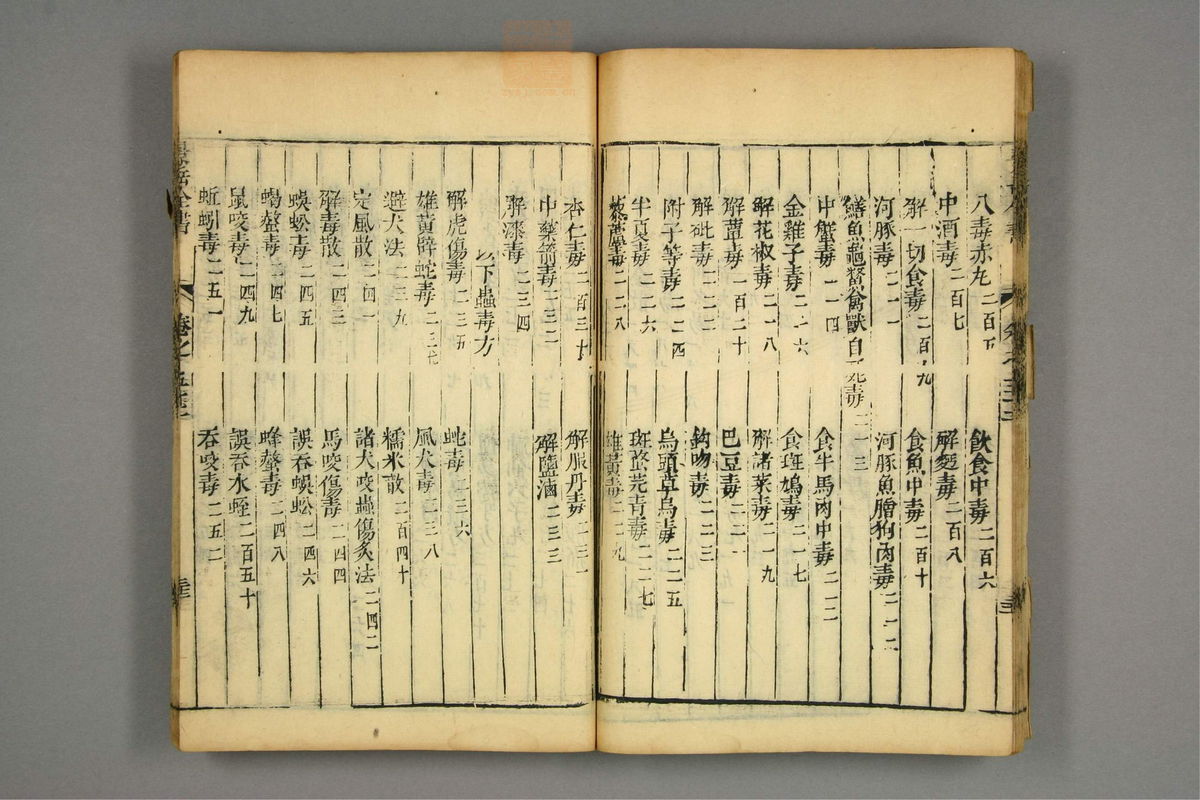 八毒赤丸二百五
飲食中毒二百六
中酒毒二百七
解麪毒二百八
解一切食毒二百九
食魚中毒二百十
河豚毒二一一
河豚魚膾狗肉毒二一二
鱔魚龜鱉禽獸自死毒二一三
中蟹毒二一四
食牛馬肉中毒
金雞子毒二一六
食斑鳩毒二一七
解花椒毒二一八
解諸菜毒二一九
解藍毒二百二十
巴豆毒二二一
解砒毒二二二
鈎吻毒二二三
附子等毒二二四
烏頭草烏毒二二五
半夏毒二二六
斑蝥芫青毒二二七
藜蘆毒二二八
雄黃毒二二九
杏仁毒二百三十
解服丹毒二三一
中藥箭毒二三二
解鹽滷二三三
解漆毒二三四
以下蟲毒方
解虎傷毒二三五
蛇毒二三六
雄黃辟蛇毒二三七
風犬毒二三八
避犬法二三九
糯米散二百四十
定風散二四一
諸犬咬蟲傷灸法二四二
解毒散二四三
馬咬傷毒二四四
蜈蚣毒二四五
誤吞蜈蚣二四六
蝎螫毒二四七
蜂螫毒二四八
鼠咬毒二四九
誤吞水蛭二百五十
蚯蚓毒二五一
吞咬毒二五二
景岳全書
卷之五